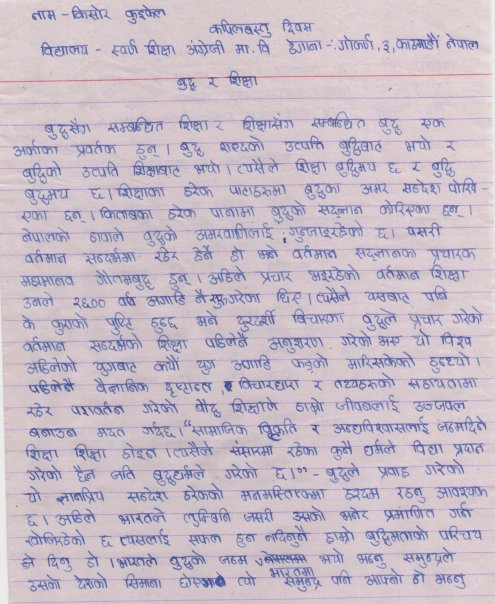 नाम - किशोर कुइकेल
कपिलबस्तु दिवस
विद्यालय - स्वर्ण शिक्षा अंग्रेजी मा. वि ठेगाना - गोकर्ण, ३, काठमाडौं नेपाल
बुद्ध र शिक्षा
बुद्धसँग सम्बन्धित शिक्षा र शिक्षासँग सम्बन्धित बुद्ध एक
अर्काका प्रवर्तक हुन् । बुद्ध शब्दको उत्पति बुद्धिबाट भयो र
बुद्धिको उत्पति शिक्षाबाट भयो । त्यसैले शिक्षा बुद्धिमय छ र बुद्धि
बुद्धमय छ । शिक्षाका हरेक पाटाहरुमा बुद्धका अमर सन्देश पोखि -
एका छन् । किताबका हरेक पानामा बुद्धको सद्ज्ञान कोरिएका छन् ।
नेपालको हावाले बुद्धको अमरवाणीलाई गुन्जाइरहेको छ । यसरी
वर्तमान सन्दर्भमा रहेर हेर्ने हो भने वर्तमान सद्ज्ञानका प्रचारक
महामानव गौतमबुद्ध हुन् । अहिले प्रचार भइरहेको वर्तमान शिक्षा
उनले २६०० वर्ष अगाडि नै सुरु गरेका थिए । त्यसैले यसबाट पनि
के कुराको पुष्टि हुन्छ भने दुरदर्शी विचारका बुद्धले प्रचार गरेको
वर्तमान सन्दर्भको शिक्षा पहिलेनै अनुशरण गरेको भए यो विश्व
अहिलेको युगबाट कयौं युग अगाडि फड्को मारिसकेको हुन्थ्यो ।
पहिलेनै वैज्ञानिक दृष्टान्त, विचारधारा र तथ्यहरुको सहायतामा
रहेर परावर्तन गरेको बौद्ध शिक्षाले हाम्रो जीवनलाई उज्जवल
बनाउन मद्दत गर्दछ । "सामाजिक विकृति र अन्धविश्वासलाई जन्मदिने
शिक्षा शिक्षा होइन । त्यसैले संसारमा रहेका कुनै धर्मले विद्या प्रदान
गरेको छैन जति बुद्धधर्मले गरेको छ ।" - बुद्धले प्रवाह गरेको
यो ज्ञानप्रिय सन्देश हरेकको मनमस्तिष्कमा हरदम रहनु आवश्यक
छ । अहिले भारतले लुम्बिनि जसरी उसको भनेर प्रमाणित गर्न
खोजिरहेको छ त्यसलाई सफल हुन नदिनुनै हाम्रो बुद्धिमताको परिचय
दिनु हो । भारतले बुद्धको जन्म भारतमा भयो भन्नु समुन्द्रले
उसको देशको सिमाना छोएको त्यो समुन्द्र पनि आफ्नो हो भन्नु